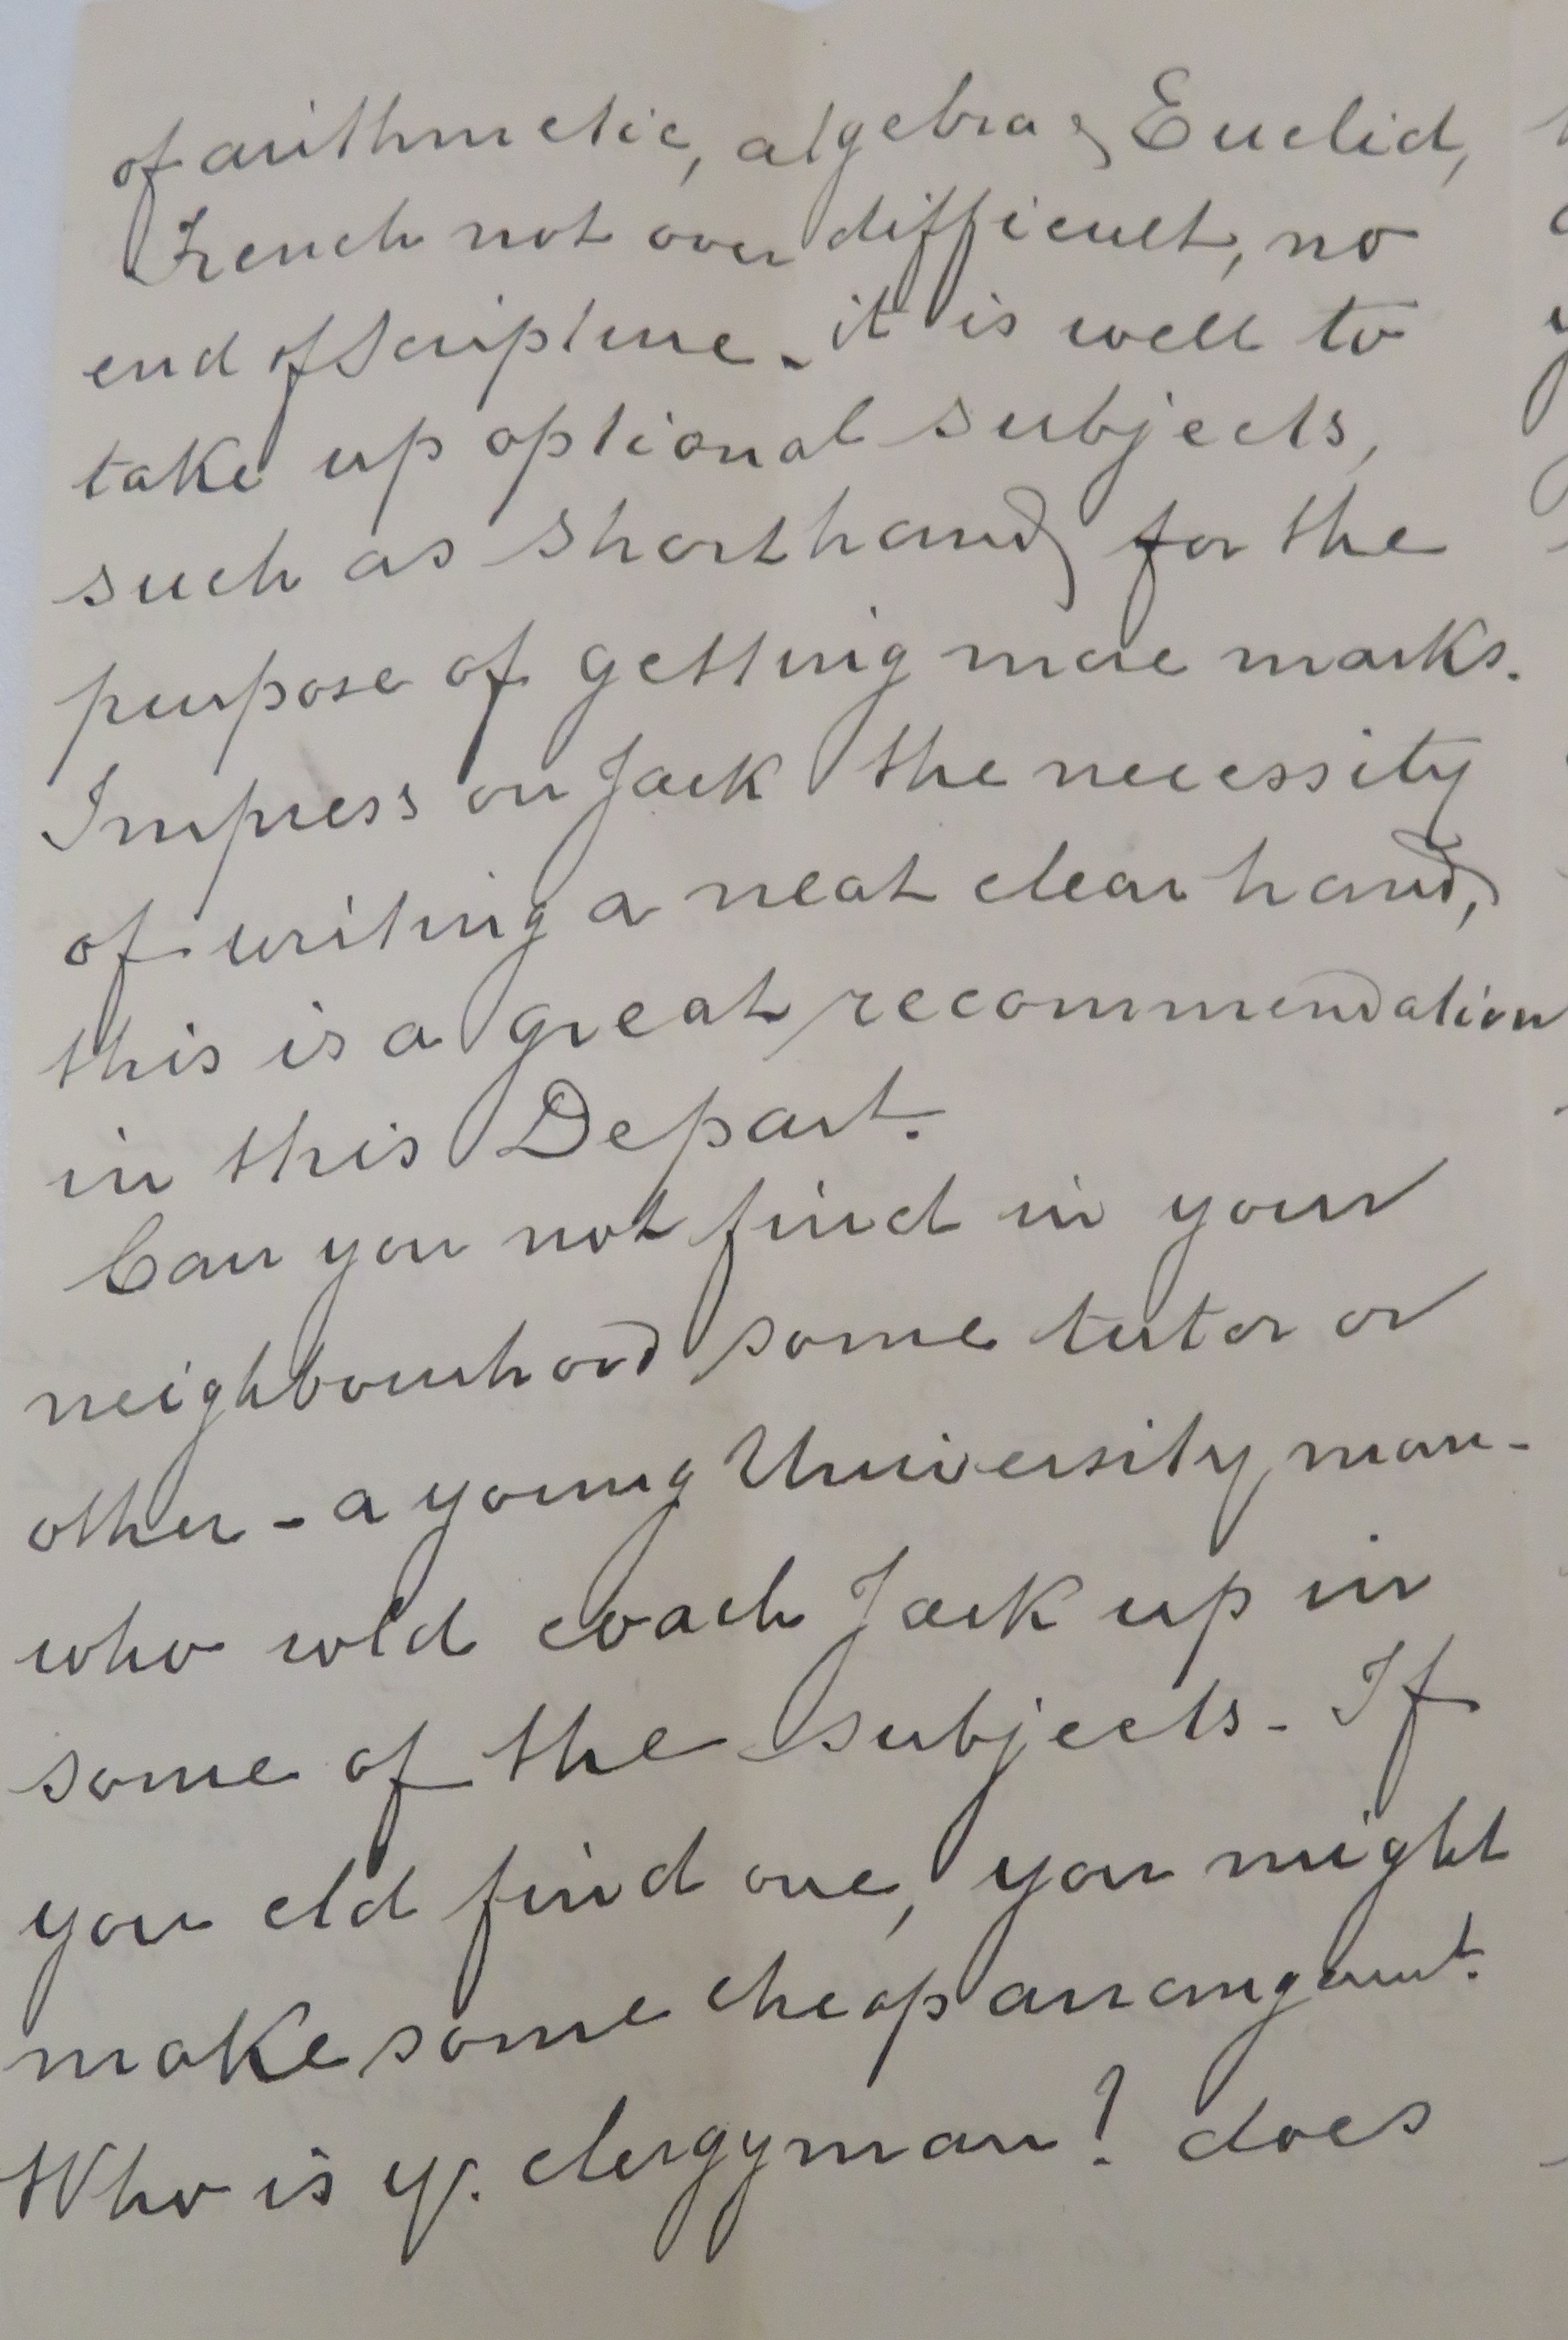 of arithmetic, algebra & Euclid,
French not over difficult, no
end of Scripture - it is well to
take up optional subjects,
such as shorthand for the
purpose of getting more marks.
Impress on Jack the necessity
of writing a neat clear hand,
this is a great recommendation
in this Depart.
Can you not find in your
neighbourhood some tutor or
other - a young University man -
who wld coach Jack up in
some of the subjects - If
you cld find one, you might
make some cheap arrangemt.
Who is yr. clergyman? does